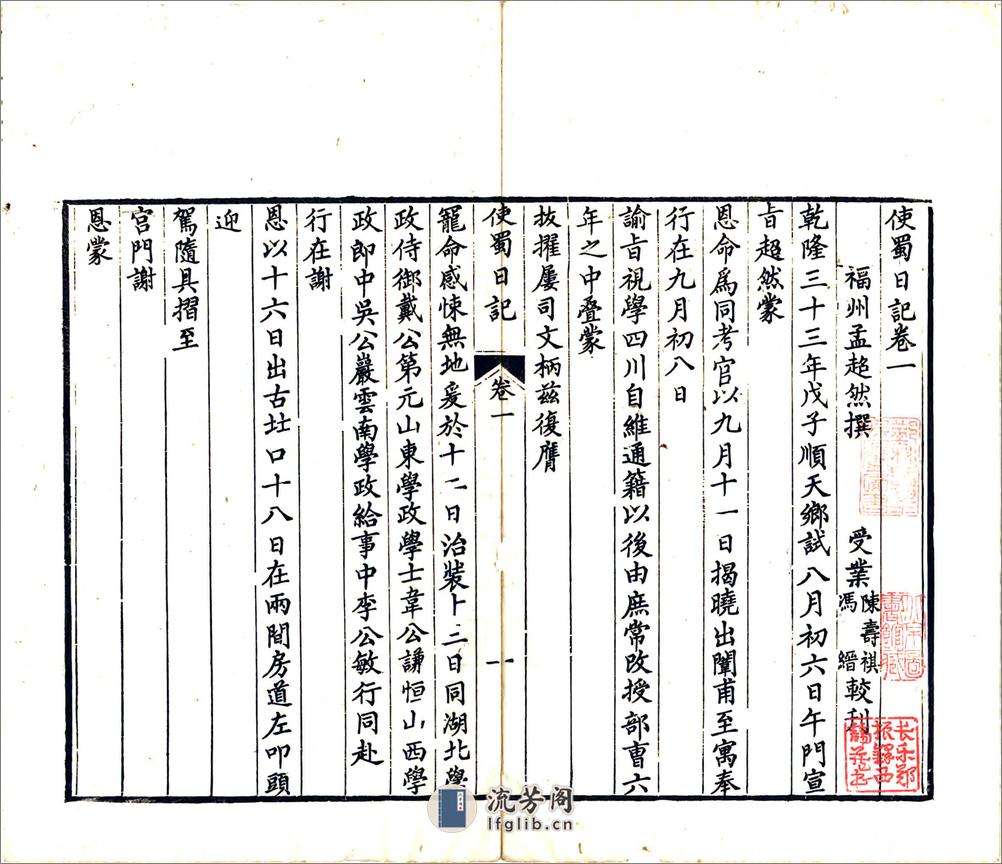 使蜀日記卷一
福州孟超然撰 受業陳壽祺馮縉較刊
乾隆三十三年戊子順天鄉試八月初六日午門宣
旨超然蒙
恩命爲同考官以九月十一日揭曉出闈甫至寓奉
行在九月初八日
諭旨視學四川自維通籍以後由庶常改授部曹六
年之中疊蒙
拔擢屢司文柄茲復膺
使蜀日記 卷一 一
寵命感悚無地爰於十二日治裝卜十三日同湖北學
政侍御戴公第元山東學政學士韋公謙恒山西學
政郎中吳公巖雲南學政給事中李公敏行同赴
行在謝
恩以十六日出古北口十八日在兩間房道左叩頭
迎
駕隨具摺至
宮門謝
恩蒙
长乐郑
振铎西
諦藏书
流芳阁
lfglib.cn